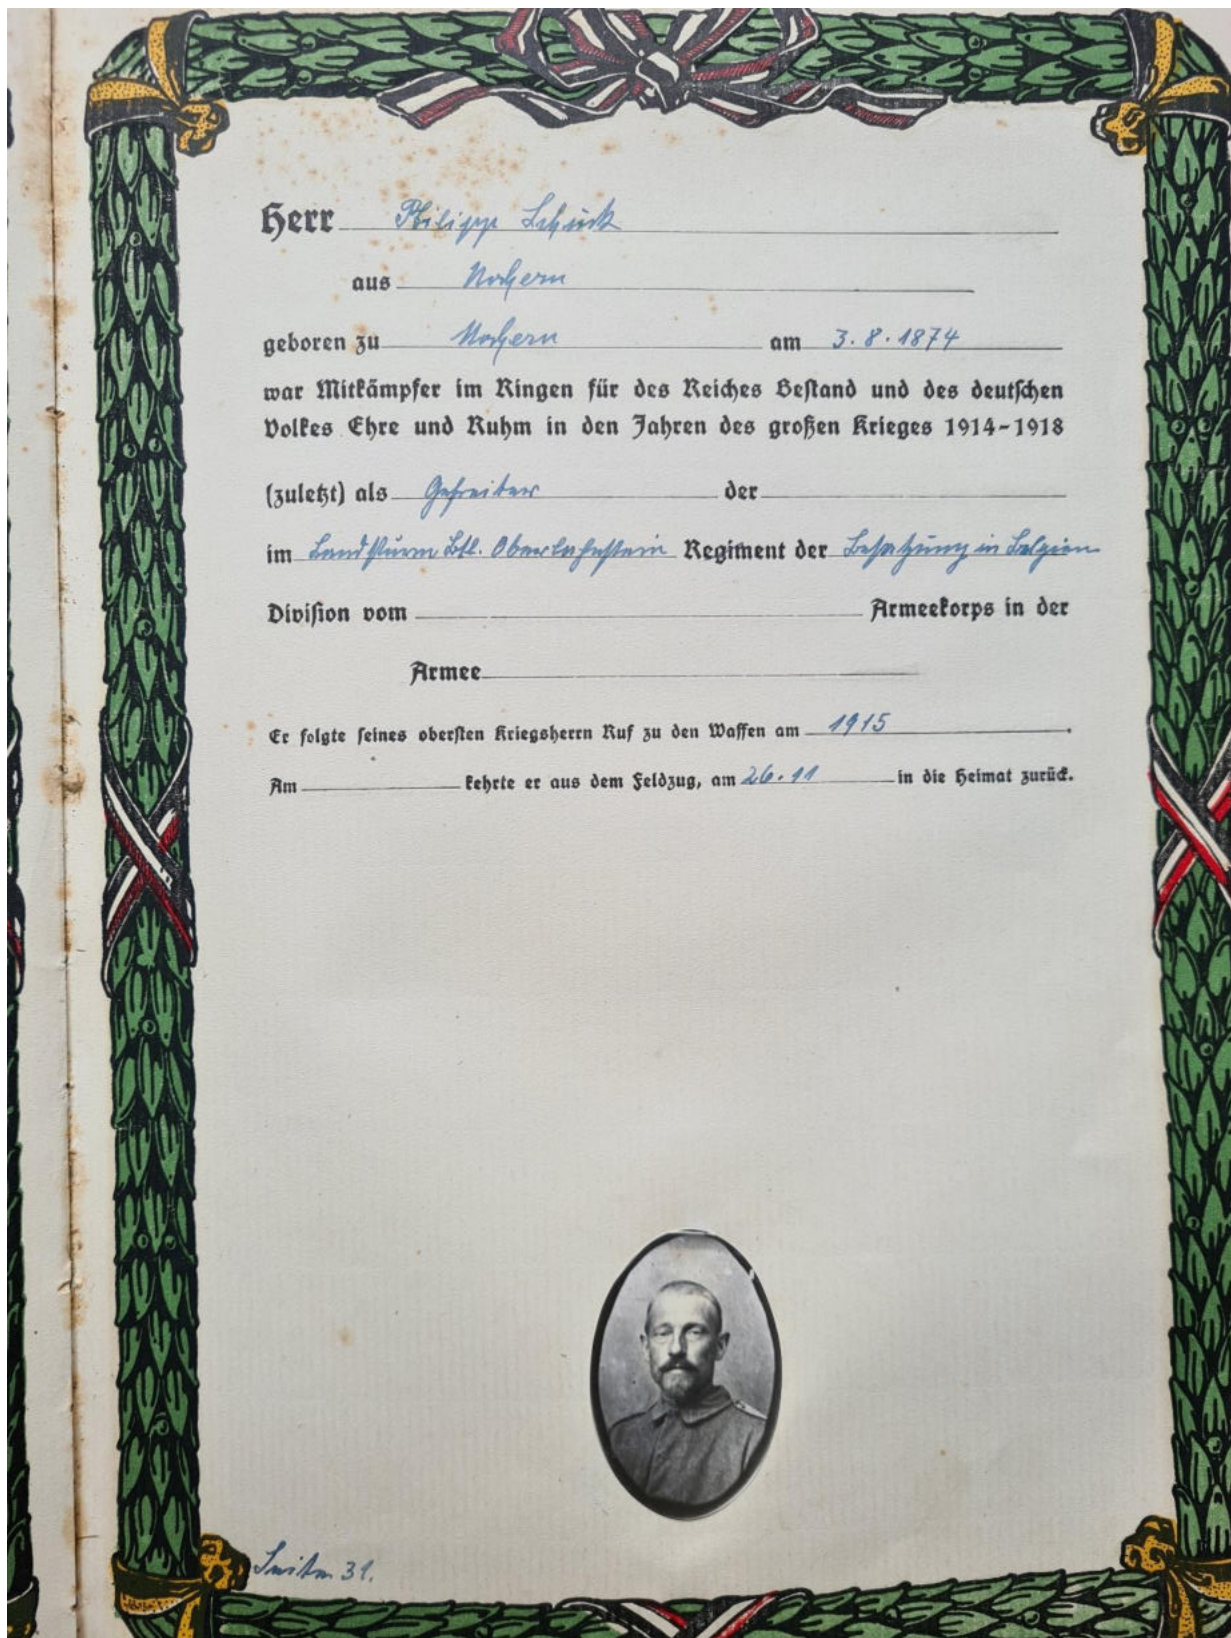 Herr Philipp Schück
aus Nochern
geboren zu Nochern am 3.8.1874
war Mitkämpfer im Ringen für des Reiches Bestand und des deutschen
Volkes Ehre und Ruhm in den Jahren des großen Krieges 1914-1918
(zuletzt) als Gefreiter der
im Landsturm Btl. Oberlahnstein Regiment der Besatzung in Belgien
Division vom Armeekorps in der
Armee
Er folgte seines obersten Kriegsherrn Ruf zu den Waffen am 1915.
Am kehrte er aus dem Feldzug, am 26.11 in die Heimat zurück.
Seite 31.